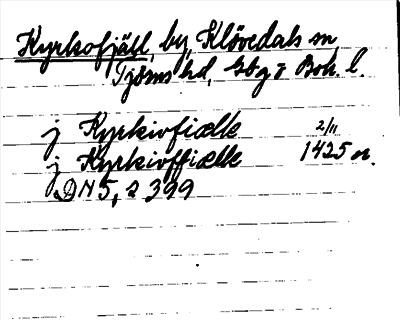 Kyrksofjäll, by, Klövedals sn
Tjörns hd, Gbg o Boh. l.
j Kyrkiofiælle 2/11
j Kyrkioffiælle 1425 n.
DN 5, s 399